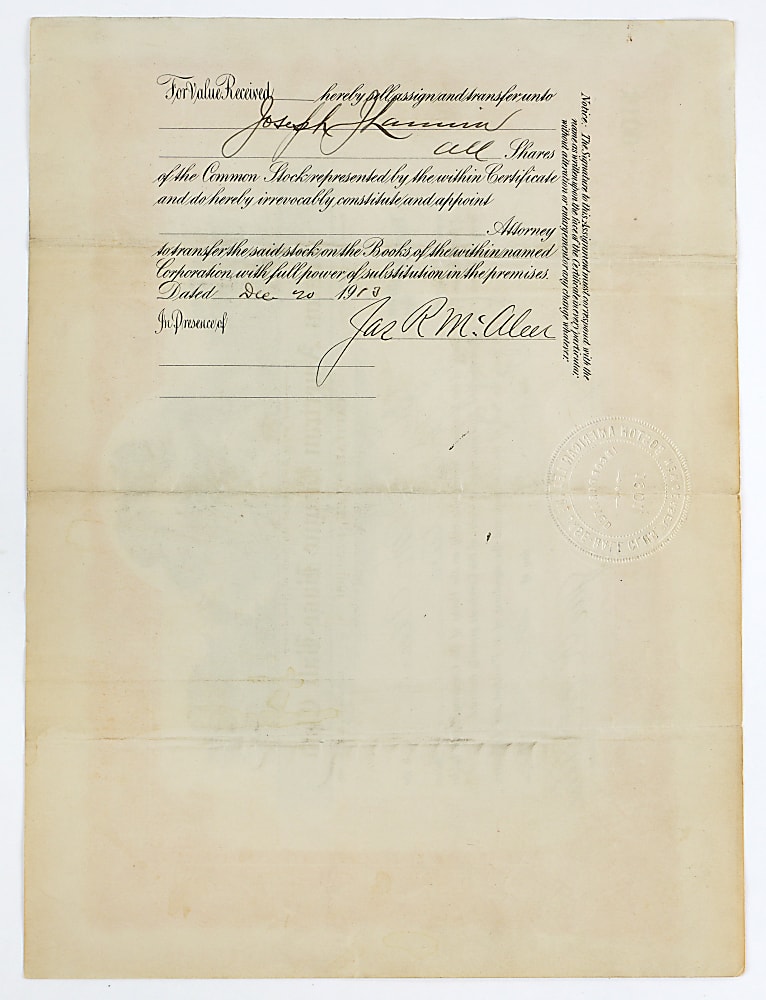 For Value Received hereby sell, assign and transfer unto
Joseph J
all Shares
of the Common Stock represented by the within Certificate
and do hereby irrevocably constitute and appoint
Attorney
to transfer the said stock on the Books of the within named
Corporation with full power of substitution in the premises.
Dated Dec 20 1913
In Presence of
Jas R McAleer
Notice: The Signature to this Assignment must correspond with the
name as written upon the face of the Certificate in every particular,
without alteration or enlargement or any change whatever.